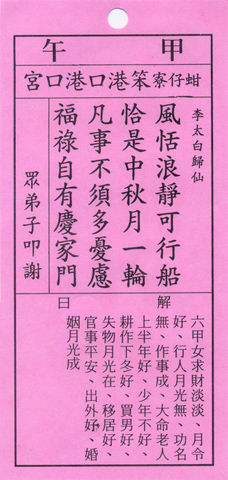 甲午
蚶仔寮笨港口港口宮
李太白歸仙
風恬浪靜可行船
恰是中秋月一輪
凡事不須多憂慮
福祿自有慶家門
眾弟子叩謝
解曰
六甲女求財淡淡、月令
好、行人月光無、功名
無、作事成、大命老人
上半年好、少年不好、
耕作下冬好、買男好、
失物月光在、移居好、
官事平安、出外好、婚
姻月光成